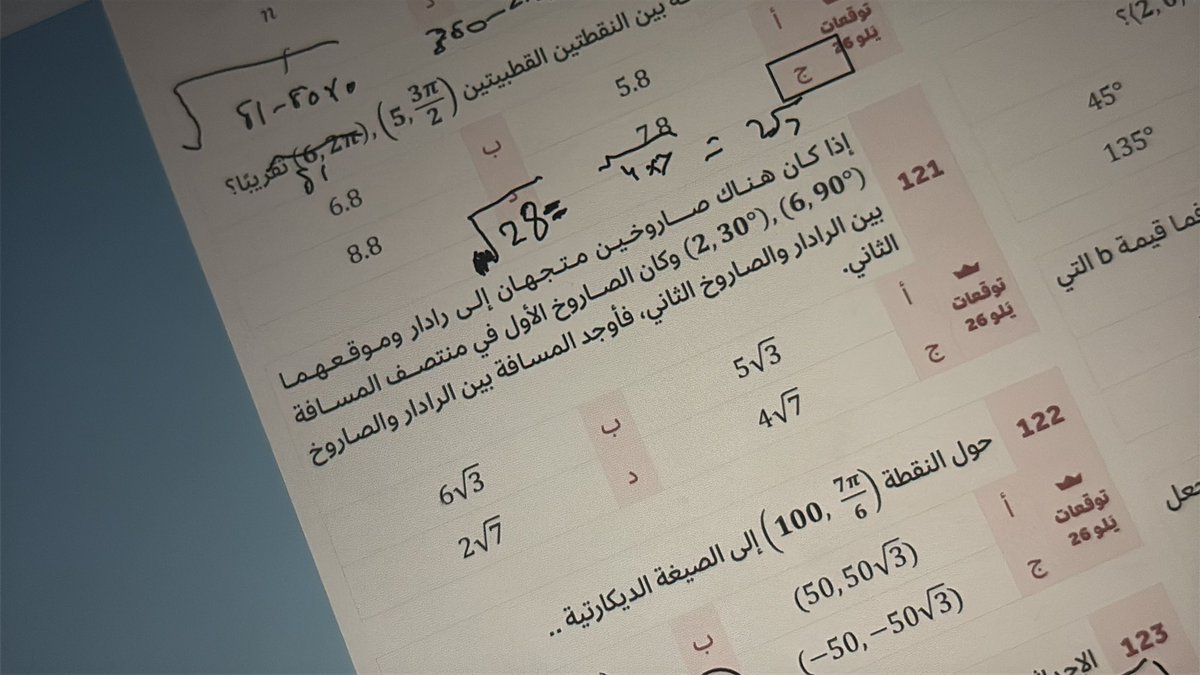 n
360-2
√ 61-60
بين النقطتين القطبيتين
(6, 2π), (5, 3π/2) تقريبًا؟
61
أ
توقعات
يلو 26
5.8
ب
6.8
ج
د
8.8
√28 =
78
4×7
= 2√7
121
إذا كان هناك صاروخين متجهان إلى رادار وموقعهما
(2, 30°), (6, 90°) وكان الصاروخ الأول في منتصف المسافة
بين الرادار والصاروخ الثاني، فأوجد المسافة بين الرادار والصاروخ
الثاني.
توقعات
يلو 26
أ
5√3
ب
6√3
ج
4√7
د
2√7
122
حول النقطة (100, 7π/6) إلى الصيغة الديكارتية ..
توقعات
يلو 26
أ
(50, 50√3)
ب
ج
(−50, −50√3)
123
45°
135°
فما قيمة b التي